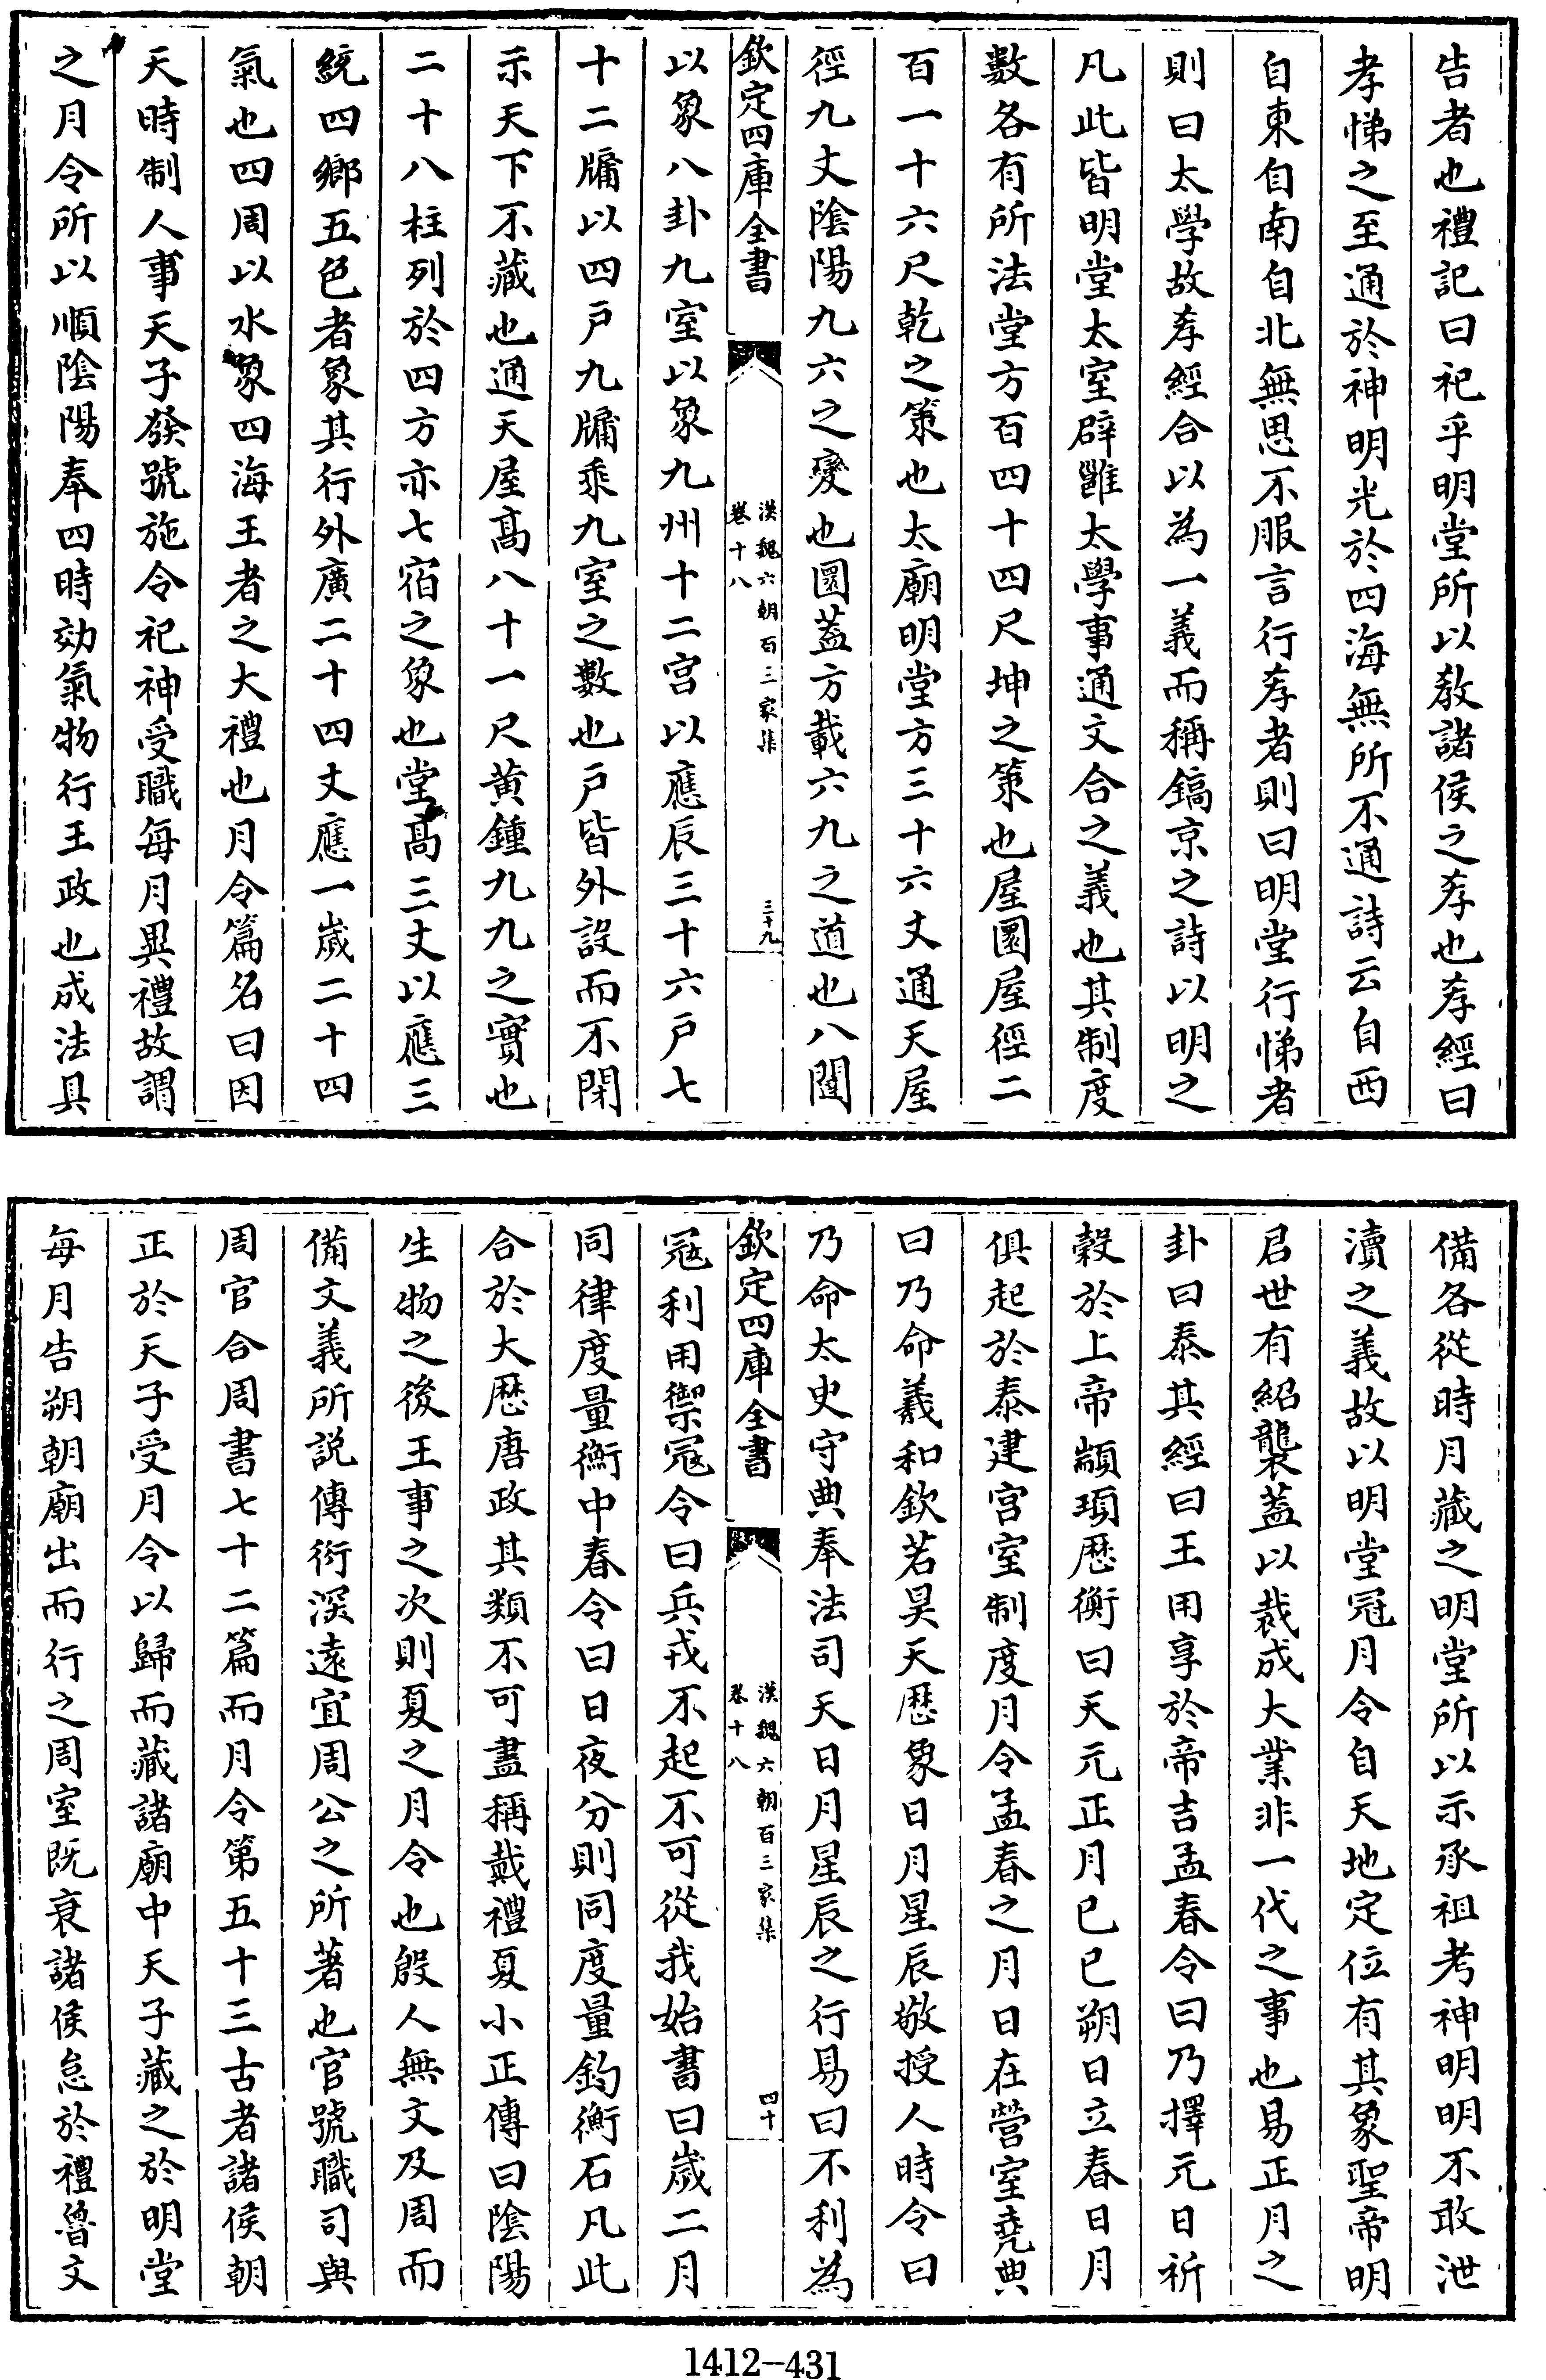 告者也禮記曰祀乎明堂所以敎諸侯之孝也孝經曰
孝悌之至通於神明光於四海無所不通詩云自西
自東自南自北無思不服言行孝者則曰明堂行悌者
則曰太學故孝經合以為一義而稱鎬京之詩以明之
凡此皆明堂太室辟雝太學事通文合之義也其制度
數各有所法堂方百四十四尺坤之策也屋圜屋徑二
百一十六尺乾之策也太廟明堂方三十六丈通天屋
徑九丈陰陽九六之變也圜蓋方載六九之道也八闥
欽定四庫全書
漢魏六朝百三家集
卷十八
三十九
以象八卦九室以象九州十二宫以應辰三十六戸七
十二牖以四戸九牖乘九室之數也戸皆外設而不閉
示天下不藏也通天屋髙八十一尺黄鍾九九之實也
二十八柱列於四方亦七宿之象也堂髙三丈以應三
統四鄉五色者象其行外廣二十四丈應一嵗二十四
氣也四周以水象四海王者之大禮也月令篇名曰因
天時制人事天子發號施令祀神受職每月異禮故謂
之月令所以順陰陽奉四時効氣物行王政也成法具
備各從時月藏之明堂所以示承祖考神明明不敢泄
瀆之義故以明堂冠月令自天地定位有其象聖帝明
君世有紹襲蓋以裁成大業非一代之事也易正月之
卦曰泰其經曰王用享於帝吉孟春令曰乃擇元日祈
穀於上帝顓頊厯衡曰天元正月已巳朔日立春日月
俱起於泰建宫室制度月令孟春之月日在營室堯典
曰乃命羲和欽若昊天厯象日月星辰敬授人時令曰
乃命太史守典奉法司天日月星辰之行易曰不利為
欽定四庫全書
漢魏六朝百三家集
卷十八
四十
冦利用禦冦令曰兵戎不起不可從我始書曰嵗二月
同律度量衡中春令曰日夜分則同度量鈞衡石凡此
合於大厯唐政其類不可盡稱戴禮夏小正傳曰陰陽
生物之後王事之次則夏之月令也殷人無文及周而
備文義所説傳衍深遠宜周公之所著也官號職司與
周官合周書七十二篇而月令第五十三古者諸侯朝
正於天子受月令以歸而藏諸廟中天子藏之於明堂
每月告朔朝廟出而行之周室既衰諸侯怠於禮魯文
1412-431